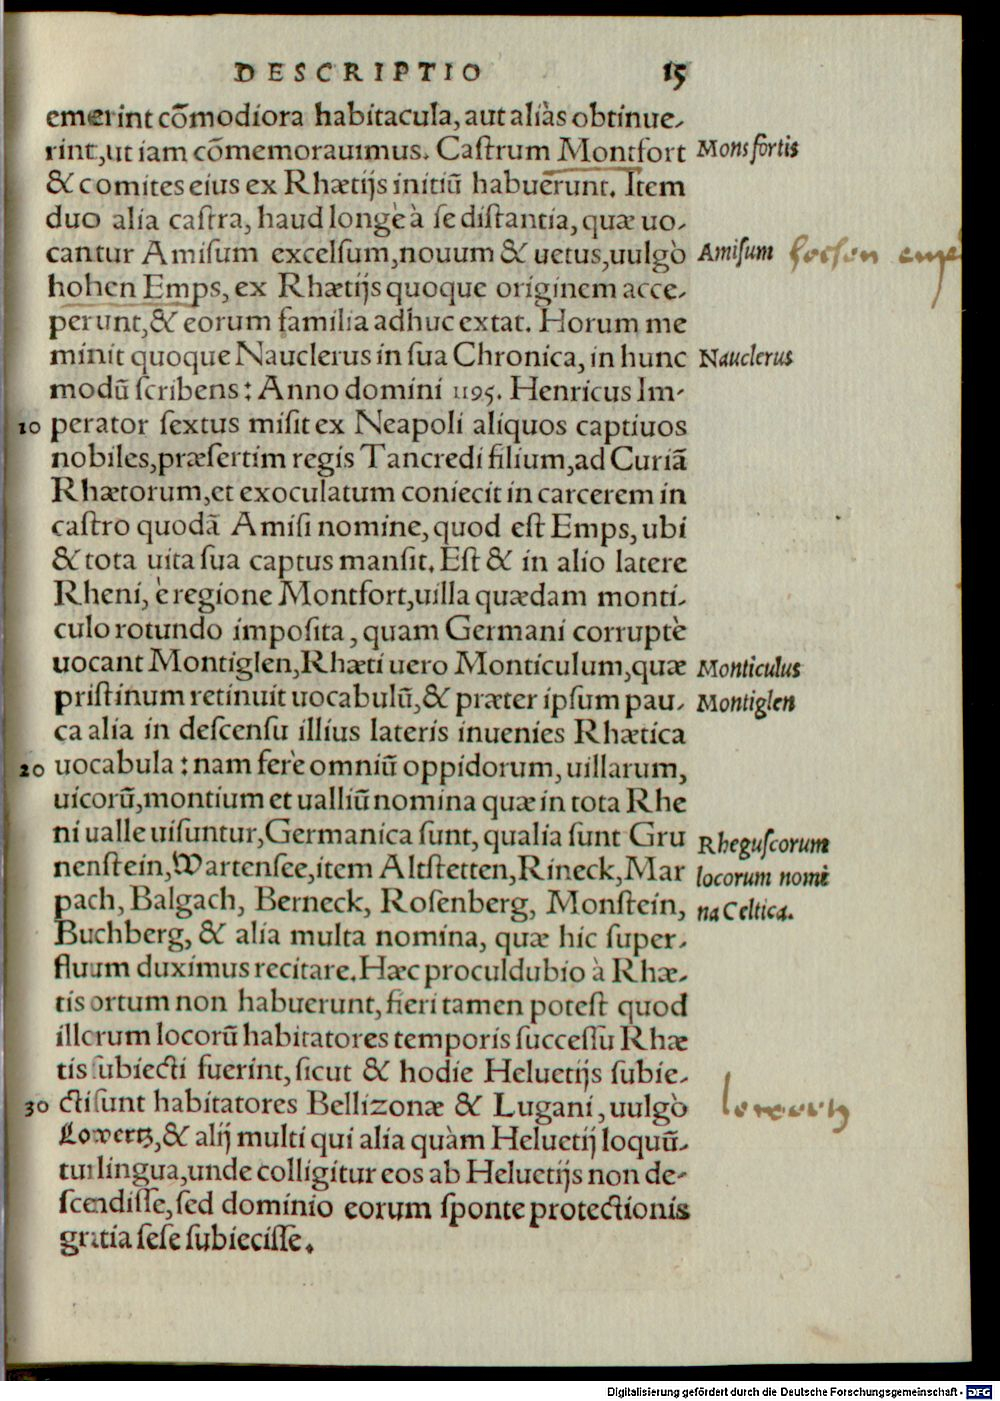 DESCRIPTIO 15
emerint cōmodiora habitacula, aut aliàs obtinue-
rint, ut iam cōmemorauimus. Castrum Montfort
Mons fortis
& comites eius ex Rhætijs initiū habuerunt. Item
duo alia castra, haud longè à se distantia, quæ uo-
cantur Amisum excelsum, nouum & uetus, uulgò
Amisum
hohen Emps, ex Rhætijs quoque originem acce-
perunt, & eorum familia adhuc extat. Horum me
minit quoque Nauclerus in sua Chronica, in hunc
Nauclerus
modū scribens: Anno domini 1195. Henricus Im-
10 perator sextus misit ex Neapoli aliquos captiuos
nobiles, præsertim regis Tancredi filium, ad Curiā
Rhætorum, et exoculatum coniecit in carcerem in
castro quodā Amisi nomine, quod est Emps, ubi
& tota uita sua captus mansit. Est & in alio latere
Rheni, è regione Montfort, uilla quædam monti-
culo rotundo imposita, quam Germani corruptè
uocant Montiglen, Rhæti uero Monticulum, quæ
Monticulus
pristinum retinuit uocabulū, & præter ipsum pau-
Montiglen
ca alia in descensu illius lateris inuenies Rhætica
20 uocabula: nam ferè omniū oppidorum, uillarum,
uicorū, montium et ualliū nomina quæ in tota Rhe
ni ualle uisuntur, Germanica sunt, qualia sunt Gru
Rheguscorum
nenstein, Wartensee, item Altstetten, Rineck, Mar
locorum nomi
pach, Balgach, Berneck, Rosenberg, Monstein,
na Celtica.
Buchberg, & alia multa nomina, quæ hic super-
fluum duximus recitare. Hæc proculdubio à Rhæ-
tis ortum non habuerunt, fieri tamen potest quod
illorum locorū habitatores temporis successu Rhæ
tis subiecti fuerint, sicut & hodie Heluetijs subie-
30 cti sunt habitatores Bellizonæ & Lugani, uulgò
Lowertz, & alij multi qui alia quàm Heluetij loquū-
tur lingua, unde colligitur eos ab Heluetijs non de-
scendisse, sed dominio eorum sponte protectionis
gratia sese subiecisse.
Digitalisierung gefördert durch die Deutsche Forschungsgemeinschaft - DFG